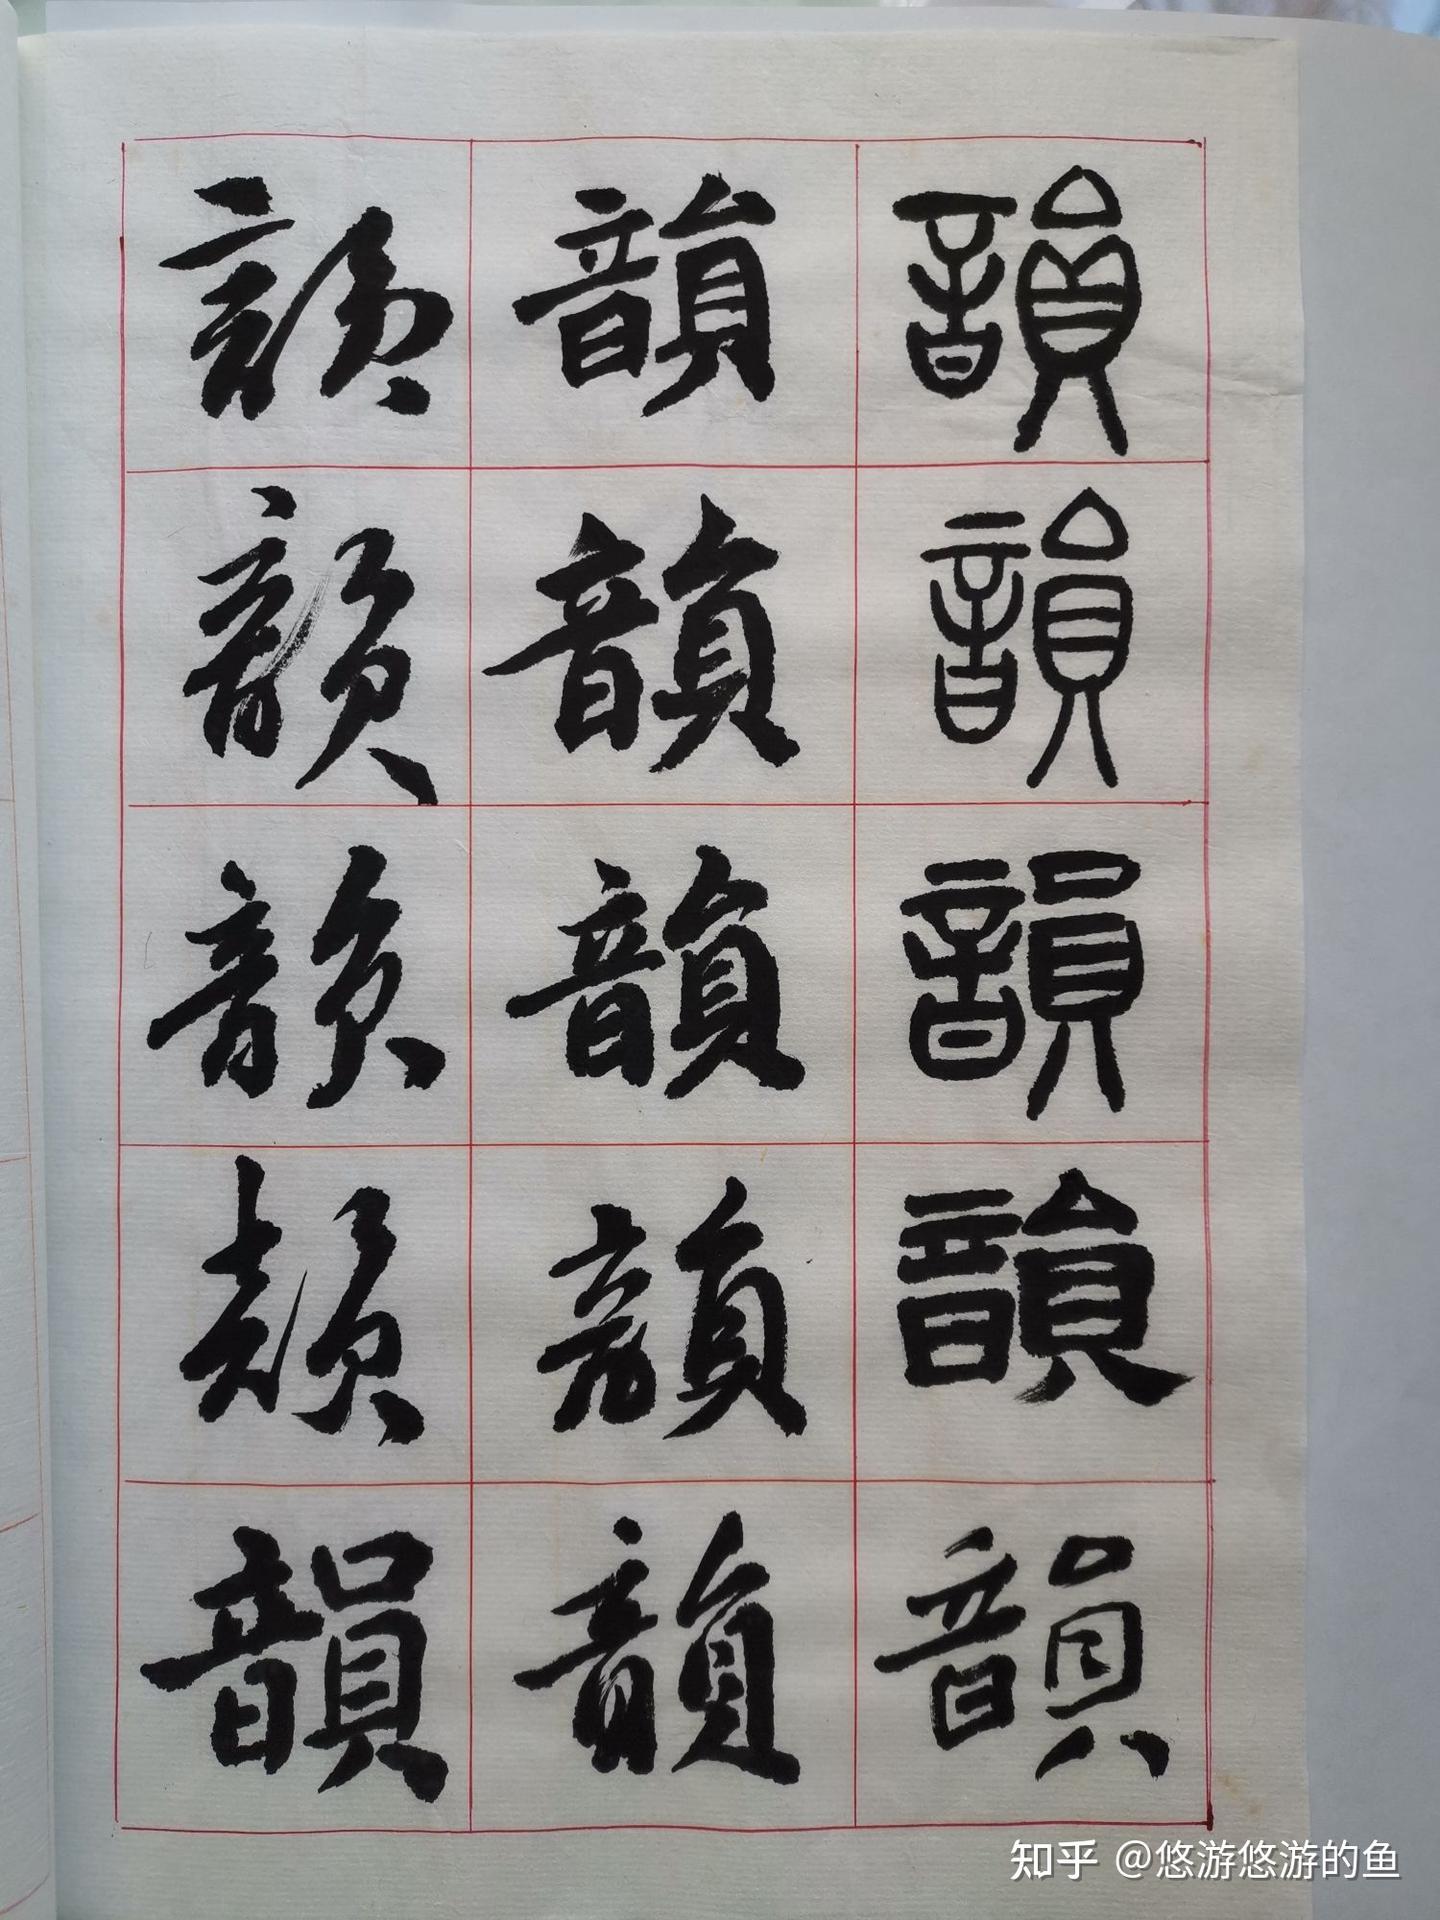 韻韻韻韻韻
韻韻韻韻韻
韻韻韻韻韻
知乎 @悠游悠游的鱼